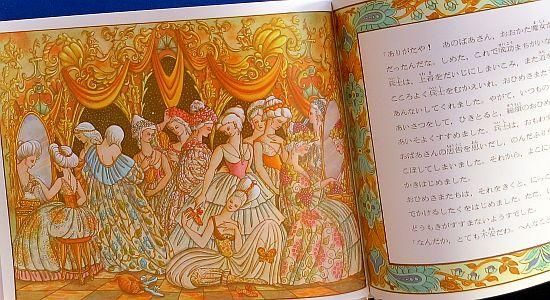 「ありがたや！　あのばあさん、おおかた魔女
だったんだな。しめた、これで成功まちがいな
兵士は、上着をだいじにしまいこみ、また道を
こころよく兵士をむかえいれ、おひめさまた
あんないしてくれました。やがて、いつもの
あいさつをして、ひきとると、
あいそよくすすめました。兵士は、おもわ
おばあさんの忠告を思いだし、のんだふり
こぼしてしまいました。それから、よこに
かきはじめました。
おひめさまたちは、それをきくと、にっこ
でかけるしたくをはじめました。ただ、
どうも気がすすまないようすでした。
「なんだか、とても不安だわ。へんなこと